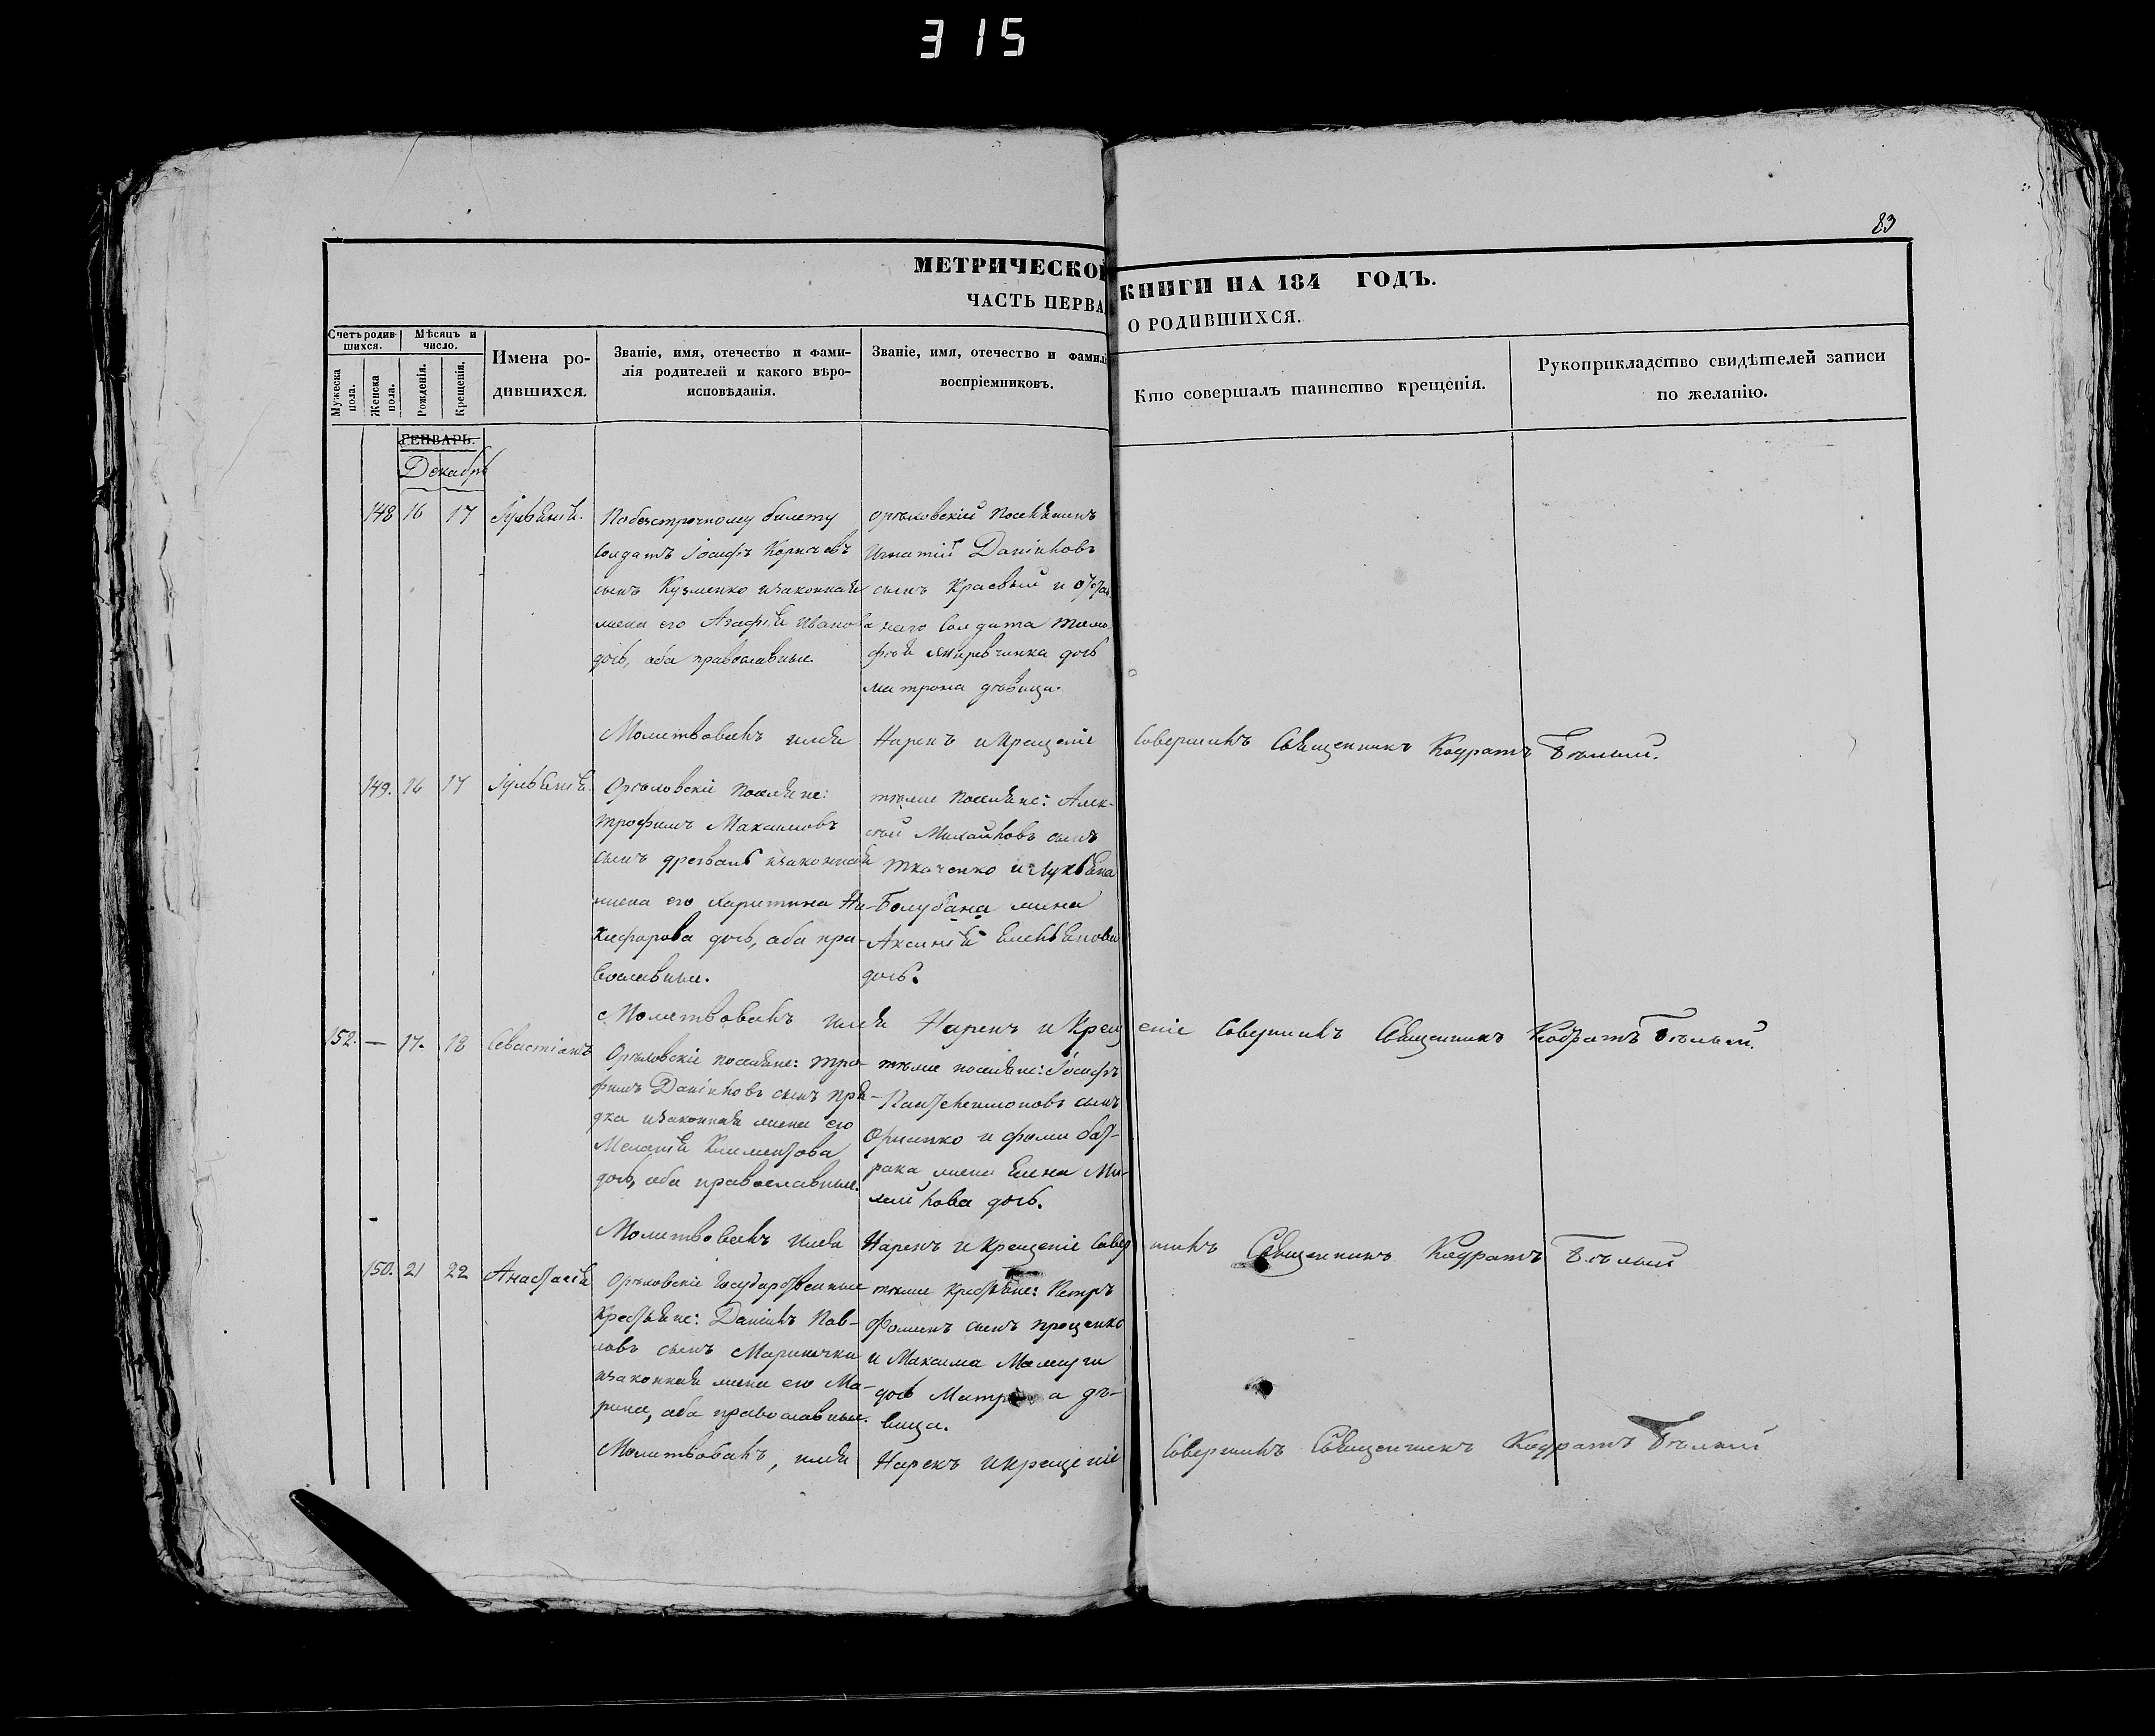 315
83
МЕТРИЧЕСКОЙ КНИГИ НА 184 ГОДЪ.
ЧАСТЬ ПЕРВА О РОДИВШИХСЯ.
Счетъ родив-
шихся.
Мѣсяцъ и
число.
Мужеска
пола.
Женска
пола.
Рожденія.
Крещенія.
Имена ро-
дившихся.
Званіе, имя, отечество и фами-
лія родителей и какого вѣро-
исповѣданія.
Званіе, имя, отечество и фамилі
воспріемниковъ.
Кто совершалъ таинство крещенія.
Рукоприкладство свидѣтелей записи
по желанію.
ГЕНВАРЬ.
Декабрь
148 16 17 Іуліанія.
По безсрочному билету
Солдатъ Іосифъ
сынъ Кузменко и законная
жена его Агафія Ивано
дочь, оба православные.
Орѣховскій Поселянинъ
Игнатій Даніиловъ
сынъ Красный и
наго Солдата Тимо-
фея дочь
Матрона дѣвица.
Молитвовалъ имя Нарекъ и Крещеніе Совершилъ Священникъ Кодратъ Бѣлый.
149. 16 17 Іуліанія.
Орѣховскіе Поселяне:
Трофимъ Максимовъ
сынъ и законная
жена его Харитина Ни-
кифорова дочь, оба пра-
вославные.
тѣже Поселяне: Алек-
сѣй Михайловъ сынъ
Ткаченко и Лукіана
Болубана жена
Аксинія
дочь.
Молитвовалъ имя Нарекъ и Крещеніе Совершилъ Священникъ Кодратъ Бѣлый.
152. — 17. 18 Севастіанъ
Орѣховскіе поселяне: Тро-
фимъ Даніиловъ сынъ Пря-
дка и законная жена его
Меланія Климентова
дочь, оба православные.
тѣже поселяне: Іосифъ
Пантелеимоновъ сынъ
и Фомы Бат-
рака жена Елена Ми-
хайлова дочь.
Молитвовалъ имя Нарекъ и Крещеніе Совершилъ Священникъ Кодратъ Бѣлый
150. 21 22 Анастасія
Орѣховскіе Государственные
Крестьяне: Даніилъ Пав-
ловъ сынъ Мариночка
и законная жена его Ма-
рина, оба православные.
тѣже Крестьяне: Петръ
Фоминъ сынъ Проценко
и Максима
дочь Матрона дѣ-
вица.
Молитвовалъ, имя Нарекъ и Крещеніе Совершилъ Священникъ Кодратъ Бѣлый